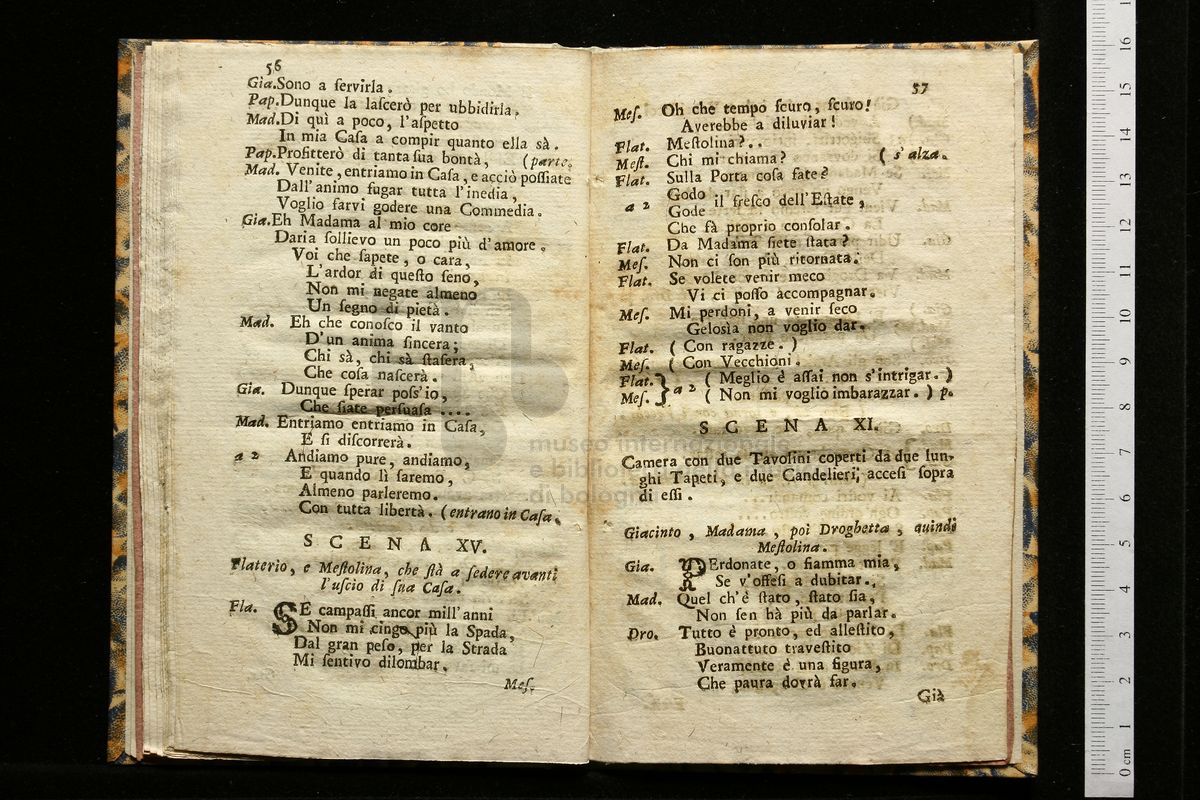 56
Gia. Sono a ſervirla.
Pap. Dunque la laſcerò per ubbidirla,
Mad. Di quì a poco, l'aſpetto
In mia Caſa a compir quanto ella sà.
Pap. Profitterò di tanta ſua bontà, (parte.
Mad. Venite, entriamo in Caſa, e acciò poſſiate
Dall'animo fugar tutta l'inedia,
Voglio farvi godere una Commedia.
Gia. Eh Madama al mio core
Daria ſollievo un poco più d'amore.
Voi che ſapete, o cara,
L'ardor di queſto ſeno,
Non mi negate almeno
Un ſegno di pietà.
Mad. Eh che conoſco il vanto
D'un anima ſincera;
Chi sà, chi sà ſtaſera,
Che coſa naſcerà.
Gia. Dunque ſperar poſs'io,
Che ſiate perſuaſa ....
Mad. Entriamo entriamo in Caſa,
E ſi diſcorrerà.
a 2 Andiamo pure, andiamo,
E quando lì ſaremo,
Almeno parleremo.
Con tutta libertà. (entrano in Caſa.
SCENA XV.
Flaterio, e Meſtolina, che ſtà a ſedere avanti
l'uſcio di ſua Caſa.
Fla. SE campaſſi ancor mill'anni
Non mi cingo più la Spada,
Dal gran peſo, per la Strada
Mi ſentivo dilombar.
Meſ.
57
Meſ. Oh che tempo ſcuro, ſcuro!
Averebbe a diluviar!
Flat. Meſtolina?..
Meſt. Chi mi chiama? (s'alza.
Flat. Sulla Porta coſa fate?
a 2 Godo
Gode il freſco dell'Eſtate,
Che fà proprio conſolar.
Flat. Da Madama ſiete ſtata?
Meſ. Non ci ſon più ritornata.
Flat. Se volete venir meco
Vi ci poſſo accompagnar.
Meſ. Mi perdoni, a venir ſeco
Gelosìa non voglio dar.
Flat. (Con ragazze.)
Meſ. (Con Vecchioni.
Flat. } a 2 (Meglio è aſſai non s'intrigar.)
Meſ. (Non mi voglio imbarazzar.) p.
SCENA XI.
Camera con due Tavolini coperti da due lun-
ghi Tapeti, e due Candelieri, acceſi ſopra
di eſſi.
Giacinto, Madama, poi Droghetta, quindi
Meſtolina.
Gia. PErdonate, o fiamma mia,
Se v'offeſi a dubitar.
Mad. Quel ch'è ſtato, ſtato ſia,
Non ſen hà più da parlar.
Dro. Tutto è pronto, ed alleſtito,
Buonattuto traveſtito
Veramente è una figura,
Che paura dovrà far.
Già
museo internazionale
e biblio
di bologn
0 cm 1 2 3 4 5 6 7 8 9 10 11 12 13 14 15 16